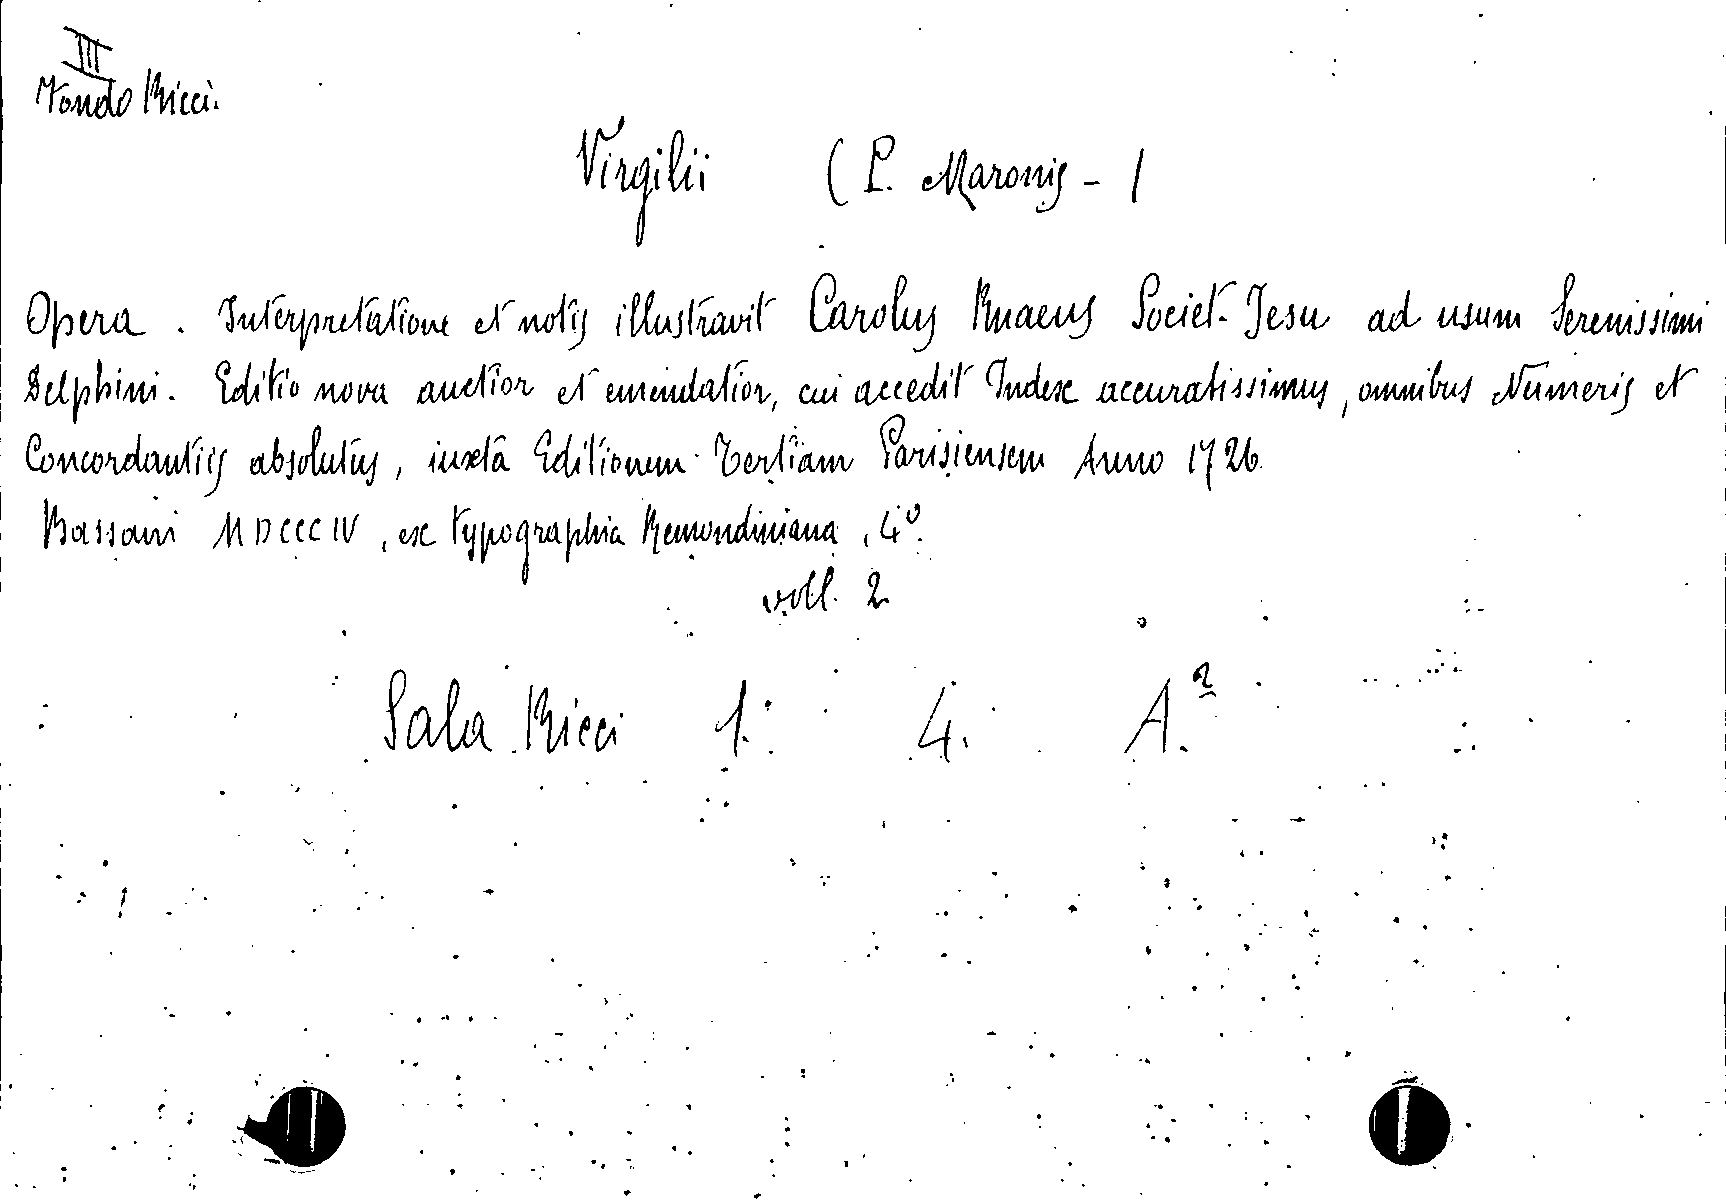 III
Fondo Ricci.
Virgilii ( P. Maronis - )
Opera . Interpretatione et notis illustravit Carolus Ruaeus Societ. Jesu ad usum Serenissimi
Delphini. Editio nova auctior et emendatior, cui accedit Index accuratissimus, omnibus Numeris et
Concordantiis absolutus, iuxta Editionem Tertiam Parisiensem Anno 1726
Bassani MDCCCIV, ex typographia Remondiniana, 4º.
voll. 2
Sala Ricci 1. 4. A.2